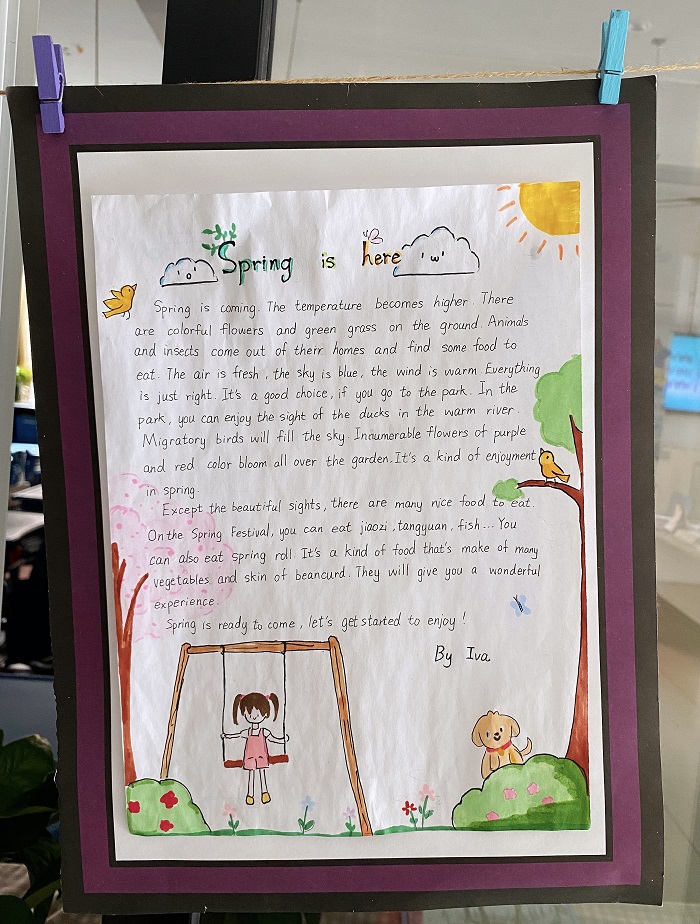 Spring is here
Spring is coming. The temperature becomes higher. There
are colorful flowers and green grass on the ground. Animals
and insects come out of their homes and find some food to
eat. The air is fresh, the sky is blue, the wind is warm Everything
is just right. It's a good choice, if you go to the park. In the
park, you can enjoy the sight of the ducks in the warm river.
Migratory birds will fill the sky. Innumerable flowers of purple
and red color bloom all over the garden. It's a kind of enjoyment
in spring.
Except the beautiful sights, there are many nice food to eat.
On the Spring Festival, you can eat jiaozi, tangyuan, fish... You
can also eat spring roll. It's a kind of food that's make of many
vegetables and skin of beancurd. They will give you a wonderful
experience.
Spring is ready to come, let's get started to enjoy!
By Iva